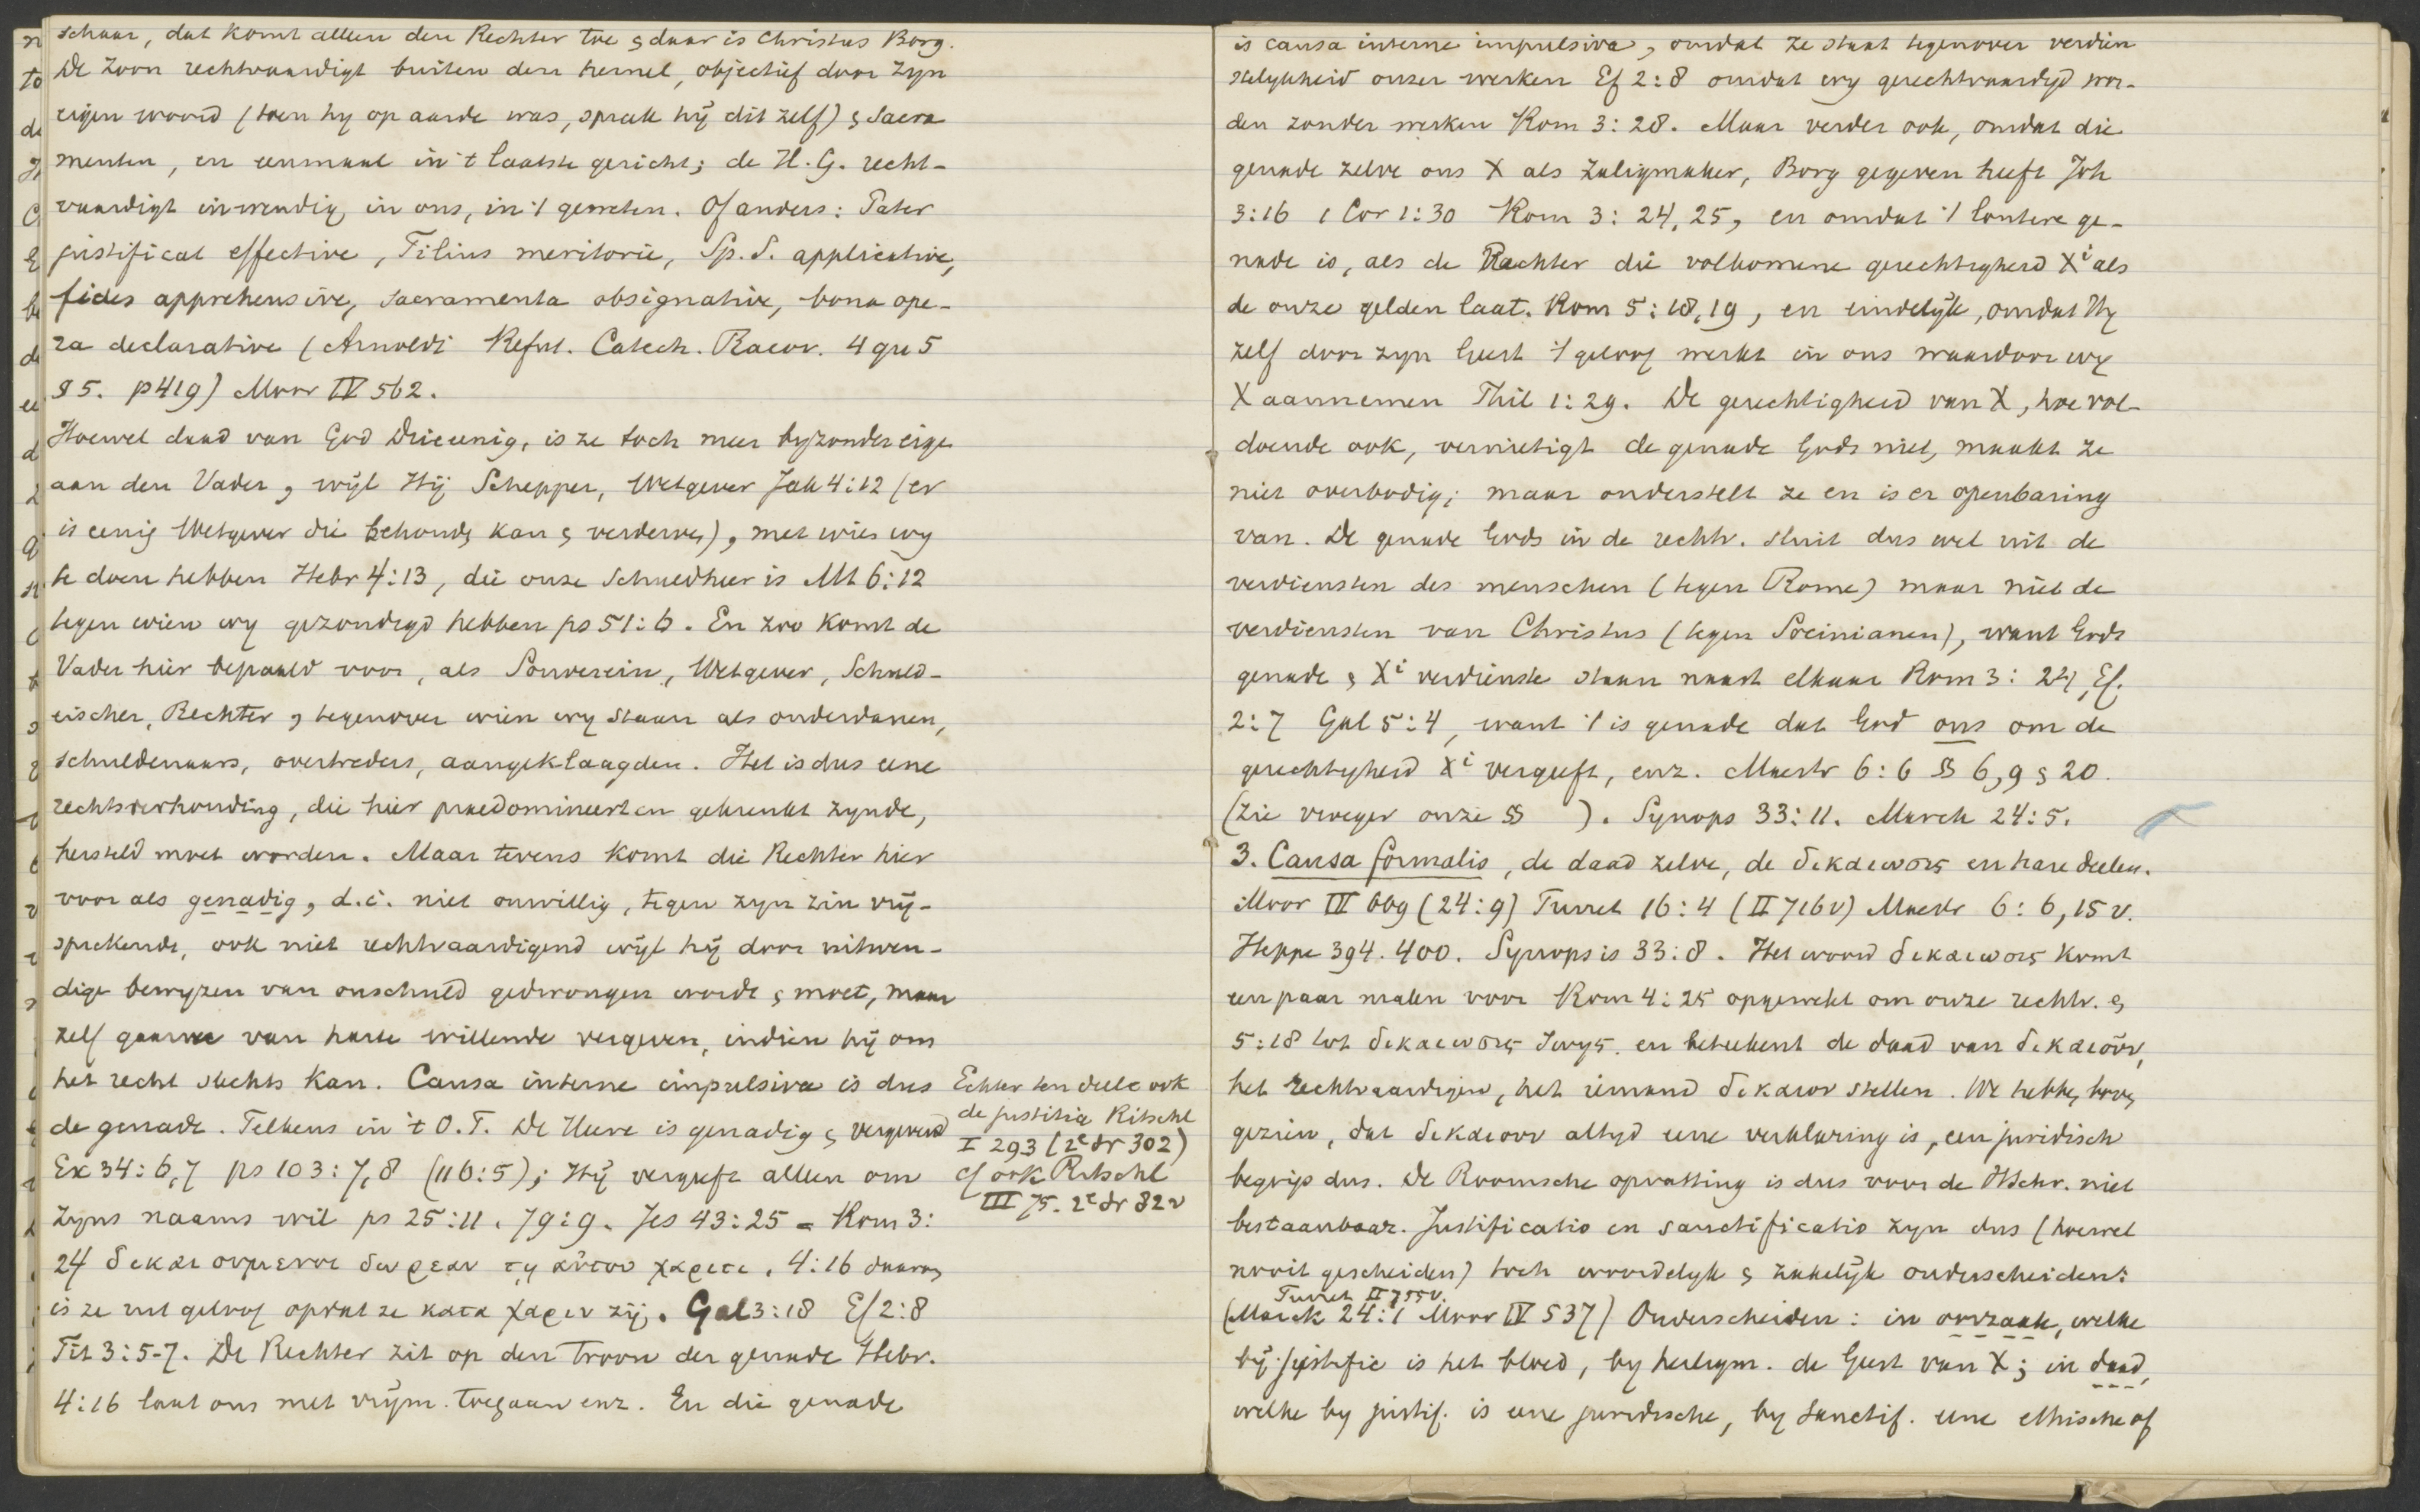 schaar, dat komt alleen den Rechter toe & daar is Christus Borg.
De Zoon rechtvaardigt buiten den hemel, objectief door zijn
eigen woord (toen hij op aarde was, sprak hij dit zelf) & Sacra
menten, en eenmaal in 't laatste gericht; de H. G. recht-
vaardigt inwendig in ons, in 't geweten. Of anders: Pater
justificat effective, Filius meritorie, Sp. S. applicative,
fides apprehensive, sacramenta obsignative, bona ope-
ra declarative (Arnoldi Refut. Catech. Racov. 4 qu 5
§ 5. p 419) Moor IV 562.
Hoewel daad van God Drieeenig, is ze toch meer byzonder eige
aan den Vader, wijl Hij Schepper, Wetgever Jak 4:12 (er
is eenig Wetgever die behoud, kan & verderve), met wien wy
te doen hebben Hebr 4:13, die onze Schuldheer is Mt 6:12
tegen wien wy gezondigd hebben ps 51:6. En zoo komt de
Vader hier bepaald voor, als Souverein, Wetgever, Schuld-
eischer, Rechter, tegenover wien wy staan als onderdanen,
schuldenaars, overtreders, aangeklaagden. Het is dus eene
rechtsverhouding, die hier praedomineert en gekrenkt zynde,
hersteld moet worden. Maar tevens komt die Rechter hier
voor als genadig, d.i. niet onwillig, tegen zyn zin vrij-
sprekende, ook niet rechtvaardigend wijl hij door uitwen-
dige bewyzen van onschuld gedwongen wordt & moet, maar
zelf gaarne van harte willende vergeven, indien hij om
het recht slechts kan. Causa interne impulsiva is dus
de genade. Telkens in 't O.T. De Heere is genadig & vergevend
Ex 34:6,7 ps 103:7,8 (116:5); Hij vergeeft alleen om
zyns naams wil ps 25:11. 79:9. Jes 43:25 = Rom 3:
24 δικαιουμενοι δωρεαν τῃ αὐτου χαριτι. 4:16 daarom
is ze uit geloof opdat ze κατα χαριν zij. Gal 3:18 Ef 2:8
Tit 3:5-7. De Rechter zit op den troon der genade Hebr.
4:16 laat ons met vrijm. toegaan enz. En die genade
Echter ten deele ook
de justitia Ritschl
I 293 (2e dr 302)
cf ook Ritschl
III 75. 2e dr 82 v
is causa interne impulsiva, omdat ze staat tegenover verdien
stelykheid onzer werken Ef 2:8 omdat wy gerechtvaardigd wor-
den zonder werken Rom 3:28. Maar verder ook, omdat die
genade zelve ons X als Zaligmaker, Borg gegeven heeft Joh
3:16 1 Cor 1:30 Rom 3:24,25, en omdat 't loutere ge-
nade is, als de Rechter die volkomene gerechtigheid Xi als
de onze gelden laat. Rom 5:18,19, en eindelijk, omdat Hy
zelf door zyn Geest 't geloof werkt in ons waardoor wy
X aannemen Phil 1:29. De gerechtigheid van X, hoe vol-
doende ook, vernietigt de genade Gods niet, maakt ze
niet overbodig; maar onderstelt ze en is er openbaring
van. De genade Gods in de rechtv. sluit dus wel uit de
verdiensten des menschen (tegen Rome) maar niet de
verdiensten van Christus (tegen Socinianen), want Gods
genade & Xi verdienste staan naast elkaar Rom 3:24, Ef.
2:7 Gal 5:4, want 't is genade dat God ons om de
gerechtigheid Xi vergeeft, enz. Maestr 6:6 §§ 6,9 & 20.
(Zie vroeger onze §§ ). Synops 33:11. Marck 24:5.
3. Causa formalis, de daad zelve, de δικαιωσις en hare deelen.
Moor IV 669 (24:9) Turret 16:4 (II 716v) Maestr 6:6,15 v.
Heppe 394. 400. Synopsis 33:8. Het woord δικαιωσις komt
een paar malen voor Rom 4:25 opgewekt om onze rechtv. &
5:18 tot δικαιωσις ζωης. en beteekent de daad van δικαιοῦν,
het rechtvaardigen, het iemand δικαιον stellen. We hebben boven
gezien, dat δικαιουν altyd eene verklaring is, een juridisch
begrip dus. De Roomsche opvatting is dus voor de HSchr. niet
bestaanbaar. Justificatio en sanctificatio zyn dus (hoewel
nooit gescheiden) toch woordelyk & zakelijk onderscheiden:
Turret II 755v.
(Marck 24:1 Moor IV 537) Onderscheiden: in oorzaak, welke
bij justific is het bloed, by heiligm. de Geest van X; in daad,
welke by justif. is eene juridische, by sanctif. eene ethische of